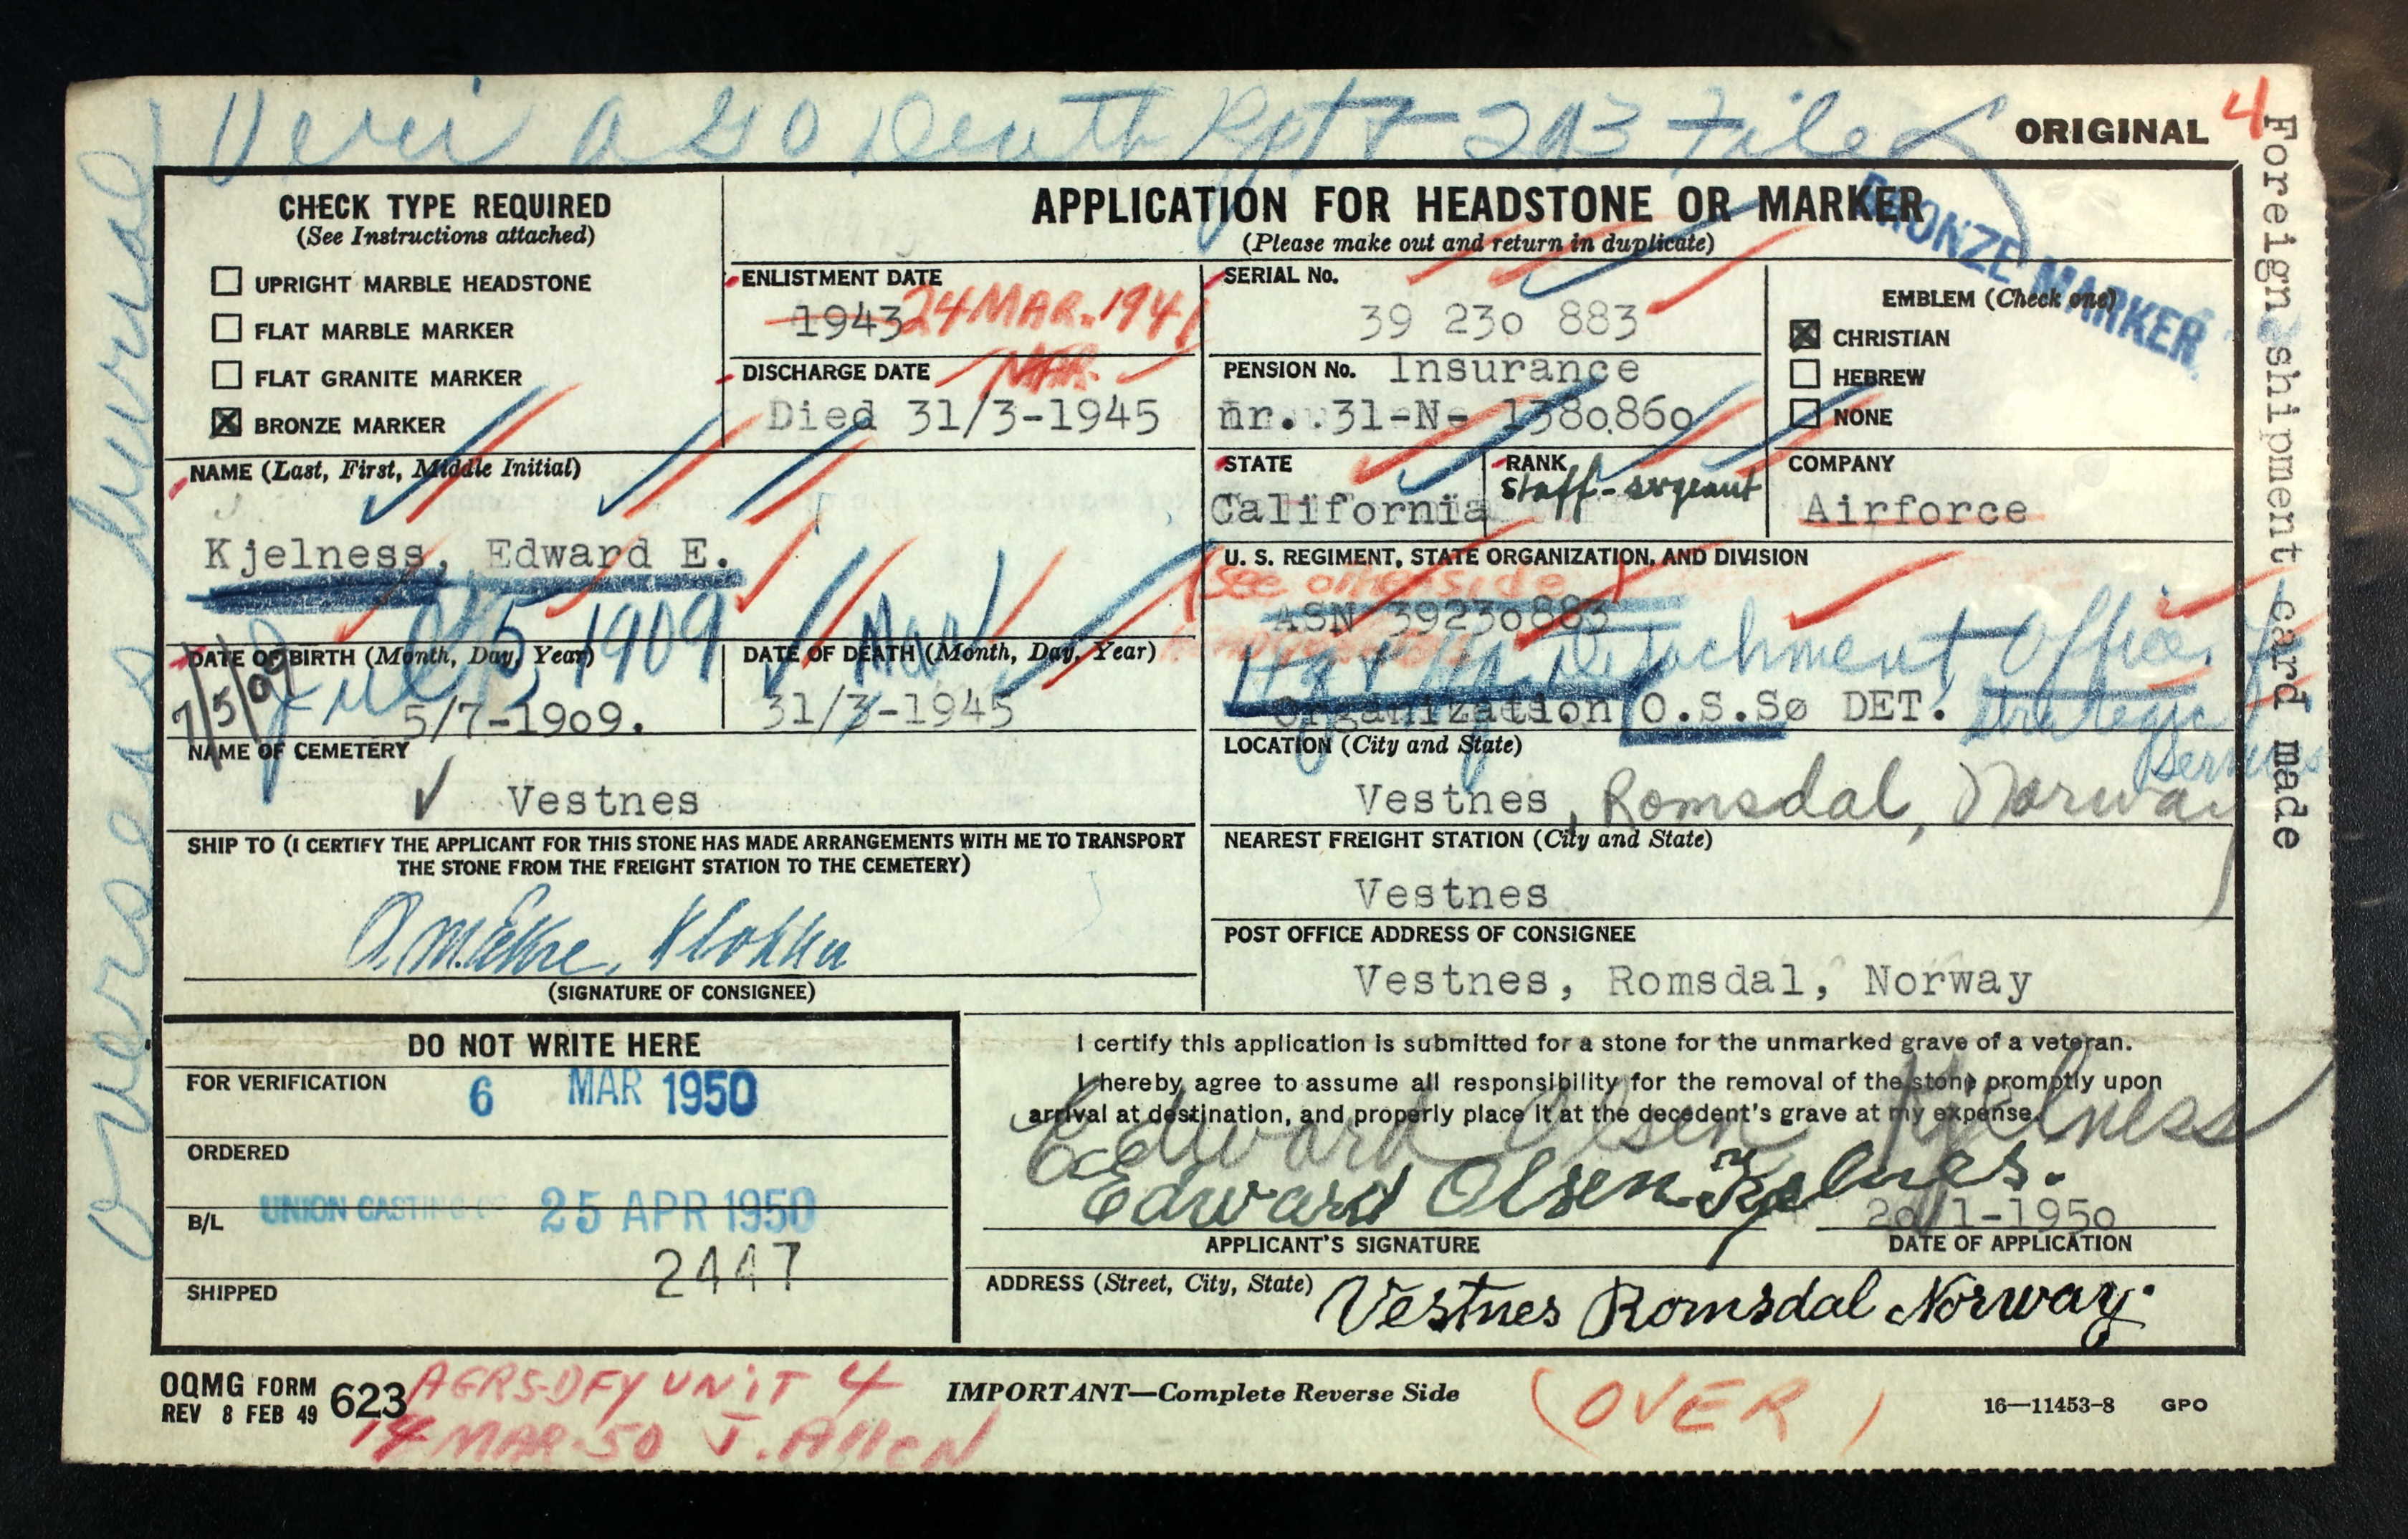 Veri AGO Death Rpt & 203 File
ORIGINAL
4
Foreign shipment card made
overseas burial
CHECK TYPE REQUIRED
(See Instructions attached)
☐ UPRIGHT MARBLE HEADSTONE
☐ FLAT MARBLE MARKER
☐ FLAT GRANITE MARKER
☒ BRONZE MARKER
APPLICATION FOR HEADSTONE OR MARKER
(Please make out and return in duplicate)
BRONZE MARKER
ENLISTMENT DATE
1943 24 MAR. 1941
DISCHARGE DATE MAR.
Died 31/3-1945
SERIAL No.
39 230 883
PENSION No. Insurance
nr. 31-N- 1380860
EMBLEM (Check one)
☒ CHRISTIAN
☐ HEBREW
☐ NONE
NAME (Last, First, Middle Initial)
Kjelness, Edward E.
STATE
California
RANK
Staff-sergeant
COMPANY
Airforce
U. S. REGIMENT, STATE ORGANIZATION, AND DIVISION
See other side
ASN 39230883
Hq & Hq Detachment Office of
Organization O.S.Sø DET. Strategic
Services
July 5, 1909
DATE OF BIRTH (Month, Day, Year)
7/5/09
5/7-1909.
Mar
DATE OF DEATH (Month, Day, Year)
31/3-1945
NAME OF CEMETERY
Vestnes
LOCATION (City and State)
Vestnes, Romsdal, Norway
SHIP TO (I CERTIFY THE APPLICANT FOR THIS STONE HAS MADE ARRANGEMENTS WITH ME TO TRANSPORT
THE STONE FROM THE FREIGHT STATION TO THE CEMETERY)
(SIGNATURE OF CONSIGNEE)
NEAREST FREIGHT STATION (City and State)
Vestnes
POST OFFICE ADDRESS OF CONSIGNEE
Vestnes, Romsdal, Norway
DO NOT WRITE HERE
FOR VERIFICATION
6 MAR 1950
ORDERED
B/L
UNION CASTING CO 25 APR 1950
2447
SHIPPED
I certify this application is submitted for a stone for the unmarked grave of a veteran.
I hereby agree to assume all responsibility for the removal of the stone promptly upon
arrival at destination, and properly place it at the decedent's grave at my expense.
Edward Olsen Kjelness
Edward Olsen Kjelnes.
20/1-1950
APPLICANT'S SIGNATURE
DATE OF APPLICATION
ADDRESS (Street, City, State) Vestnes Romsdal Norway.
OQMG FORM 623
REV 8 FEB 49
AGRS-DFY UNIT 4
14 MAR 50 J. Allen
IMPORTANT—Complete Reverse Side
(OVER)
16—11453-8 GPO